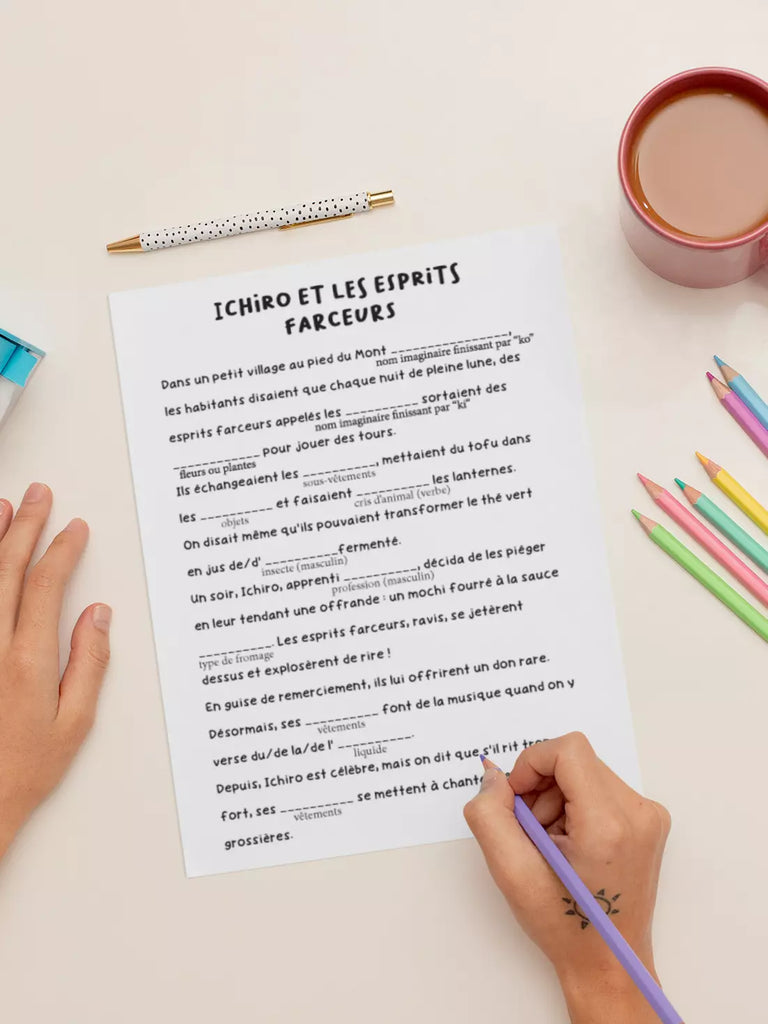 ICHIRO ET LES ESPRITS
FARCEURS
Dans un petit village au pied du Mont ________________,
nom imaginaire finissant par "ko"
les habitants disaient que chaque nuit de pleine lune, des
esprits farceurs appelés les __________ sortaient des
nom imaginaire finissant par "ki"
____________ pour jouer des tours.
fleurs ou plantes
Ils échangeaient les __________, mettaient du tofu dans
sous-vêtements
les __________ et faisaient __________ les lanternes.
objets cris d'animal (verbe)
On disait même qu'ils pouvaient transformer le thé vert
en jus de/d' __________fermenté.
insecte (masculin)
Un soir, Ichiro, apprenti __________, décida de les piéger
profession (masculin)
en leur tendant une offrande : un mochi fourré à la sauce
__________. Les esprits farceurs, ravis, se jetèrent
type de fromage
dessus et explosèrent de rire !
En guise de remerciement, ils lui offrirent un don rare.
Désormais, ses __________ font de la musique quand on y
vêtements
verse du/de la/de l' __________.
liquide
Depuis, Ichiro est célèbre, mais on dit que s'il rit
fort, ses __________ se mettent à
vêtements
grossières.